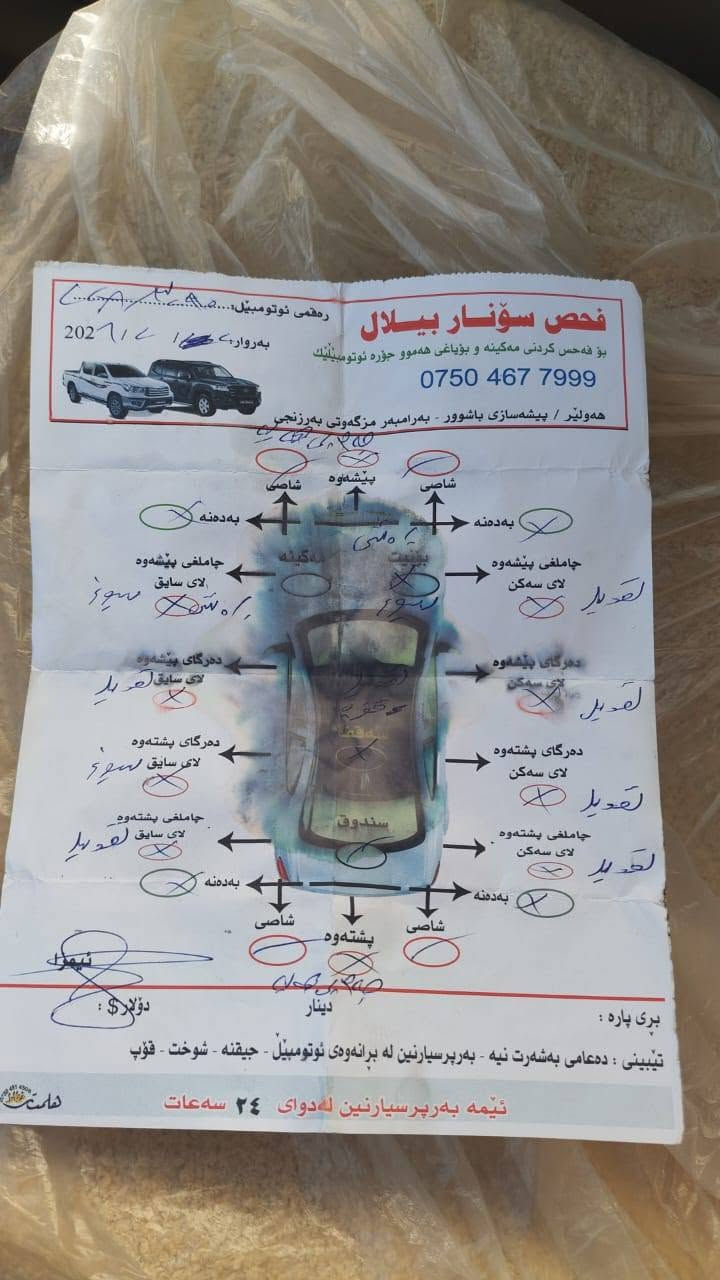 فحص سۆنار بیلال
رەقمی ئوتومبێل:
بۆ فەحس کردنی مەکینە و بۆیاغی هەموو جۆرە ئوتومبێلێك
بەروار: 202
0750 467 7999
هەولێر / پیشەسازی باشوور - بەرامبەر مزگەوتی بەرزنجی
شاصی پێشەوە شاصی
بەدەنە بەدەنە
بۆنێت مەکینە
چاملغی پێشەوە لای سەکن تقدید
چاملغی پێشەوە لای سایق
دەرگای پێشەوە لای سەکن تقدید
دەرگای پێشەوە لای سایق تقدید
سەقف
دەرگای پشتەوە لای سەکن تقدید
دەرگای پشتەوە لای سایق
سندوق
چاملغی پشتەوە لای سەکن تقدید
چاملغی پشتەوە لای سایق تقدید
بەدەنە بەدەنە
شاصی پشتەوە شاصی
ئیمزا
بڕی پارە : دینار دۆلار$ :
تێبینی : دەعامی بەشەرت نیە - بەرپرسیارنین لە بڕانەوەی ئوتومبێل - جیقنە - شوخت - قۆپ
ئێمە بەرپرسیارنین لەدوای ٢٤ سەعات
هلمت